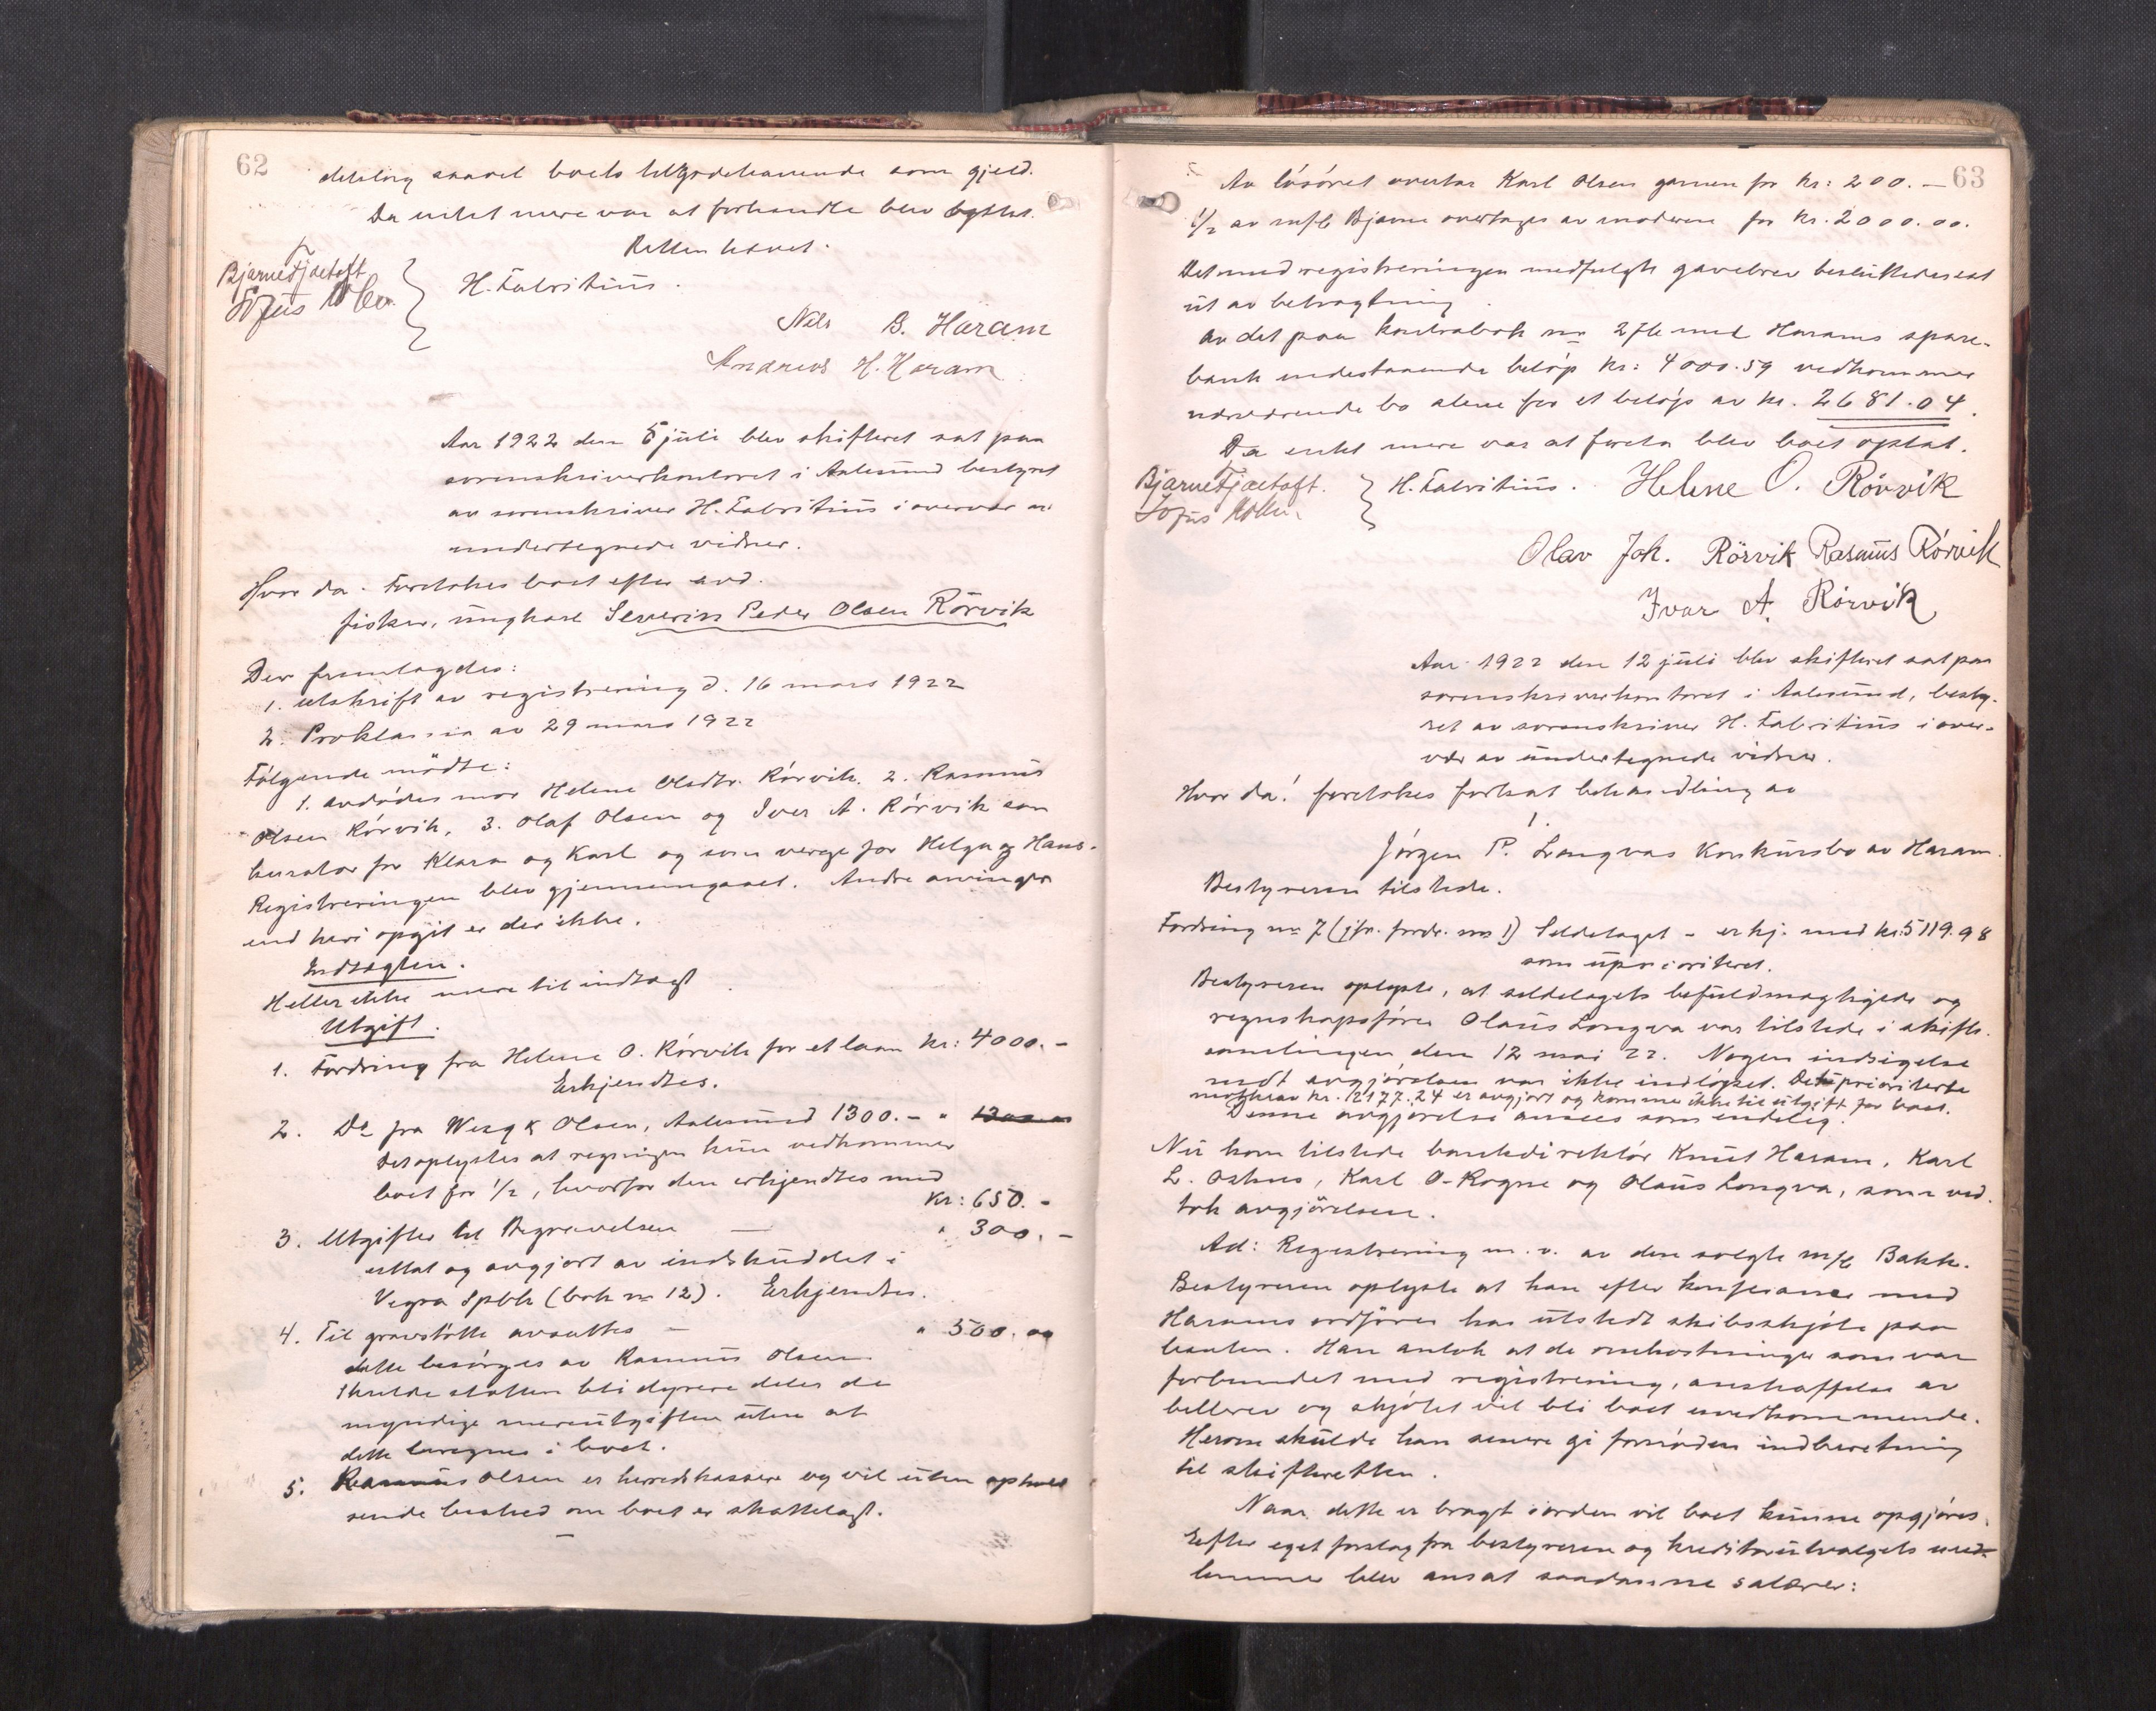 62
deteling saavel boets tilgodehavende som gjeld.
Da intet mere var at forhandle blev byttet.
Retten hævet.
Bjarne Fjørtoft
H. Fabritius.
Nils B. Haram
Andreas H. Haram
Aar 1922 den 5 juli blev skifteret sat paa
sorenskriverkontoret i Aalesund bestyret
av sorenskriver H. Fabritius i overvær av
undertegnede vidner.
Hvor da. Foretokes boet efter avd.
fisker, ungkarl Severin Peder Olsen Rörvik
Der fremlagdes:
1. utskrift av registrering d. 16 mars 1922
2. Proklama av 29 mars 1922
Følgende mödte:
1. avdødes mor Helene Olsdtr. Rörvik. 2. Rasmus
Olsen Rörvik, 3. Olaf Olsen og Iver A. Rörvik som
kurator for Klara og Karl og som verge for Helga og Hans.
Registreringen blev gjennemgaaet. Andre arvinger
end heri opgit er der ikke.
Indtægten.
Heller ikke mere til indtægt
Utgift.
1. Fordring fra Helene O. Rörvik for et laan kr: 4000.-
Erkjendtes.
2. Do fra Olsen, Aalesund 1300.- "
Det oplystes at regningen kun vedkommer
boet for 1/2, hvorfor den erkjendtes med
Kr: 650.-
3. Utgifter til Begravelsen — " 300.-
uttat og avgjort av indskuddet i
Vigra Spbk (bok no 12). Erkjendtes.
4. Til gravstötte avsattes — " 500.00
dette besörges av Rasmus Olsen.
Skulde stötten bli dyrere deles de
myndige merutgiften uten at
dette beregnes i boet.
5. Rasmus Olsen er herredskasserer og vil uten ophold
sende besked om boet er skattelagt.
63
Av lösöret overtar Karl Olsen garnen for kr: 200.—
1/2 av m/b Bjarne overtages av moderen for kr. 2000.00.
Det med registreringen medfulgte gavebrev besluttedes sat
ut av betragtning.
Av det paa kontrabok no 276 med Harams spare-
bank indestaaende belöp kr: 4000.59 vedkommer
nærværende bo alene for et belöp av kr. 2681.04.
Da intet mere var at foreta blev boet optat.
Bjarne Fjørtoft.
H. Fabritius. Helene O. Rörvik
Olav Joh. Rörvik Rasmus Rörvik
Ivar A. Rörvik
Aar 1922 den 12 juli blev skifteret sat paa
sorenskriverkontoret i Aalesund, besty-
ret av sorenskriver H. Fabritius i over-
vær av undertegnede vidner.
Hvor da! foretokes fortsat behandling av
1.
Jörgen P. Longvas Konkursbo av Haram.
Bestyreren tilstede.
Fordring no 7 (jfr. fordr. no 1) Sildelaget - erkj. med kr: 5119.98
som uprioriteret.
Bestyreren oplyste, at sildelagets befuldmægtigede og
regnskapsförer Olaus Longva var tilstede i skifte-
samlingen den 12 mai 22. Nogen indsigelse
mot avgjörelsen var ikke indlöpet. Det prioriterte
motkrav kr. 12177.24 er avgjort og komme ikke til utgift for boet.
Denne avgjörelse ansees som endelig.
Nu kom tilstede bankdirektör Knut Haram, Karl
L. Oshus, Karl O. Rogne og Olaus Longva, som ved-
tok avgjörelsen.
Ad: Registrering m. v. av den solgte m/b Bakk.
Bestyreren oplyste at han efter konferanse med
Harams ordförer har utstedt skibsskjöte paa
baaten. Han antok at de omkostninger som var
forbundet med registrering, anskaffelse av
bilbrev og skjötet vil bli boet uvedkommende.
Herom skulde han senere gi fornöden indberetning
til skifteretten.
Naar dette er bragt iorden vil boet kunne opgjöres.
Efter eget forslag fra bestyreren og kreditorutvalgets med-
lemmer blev ansat saadanne salærer: